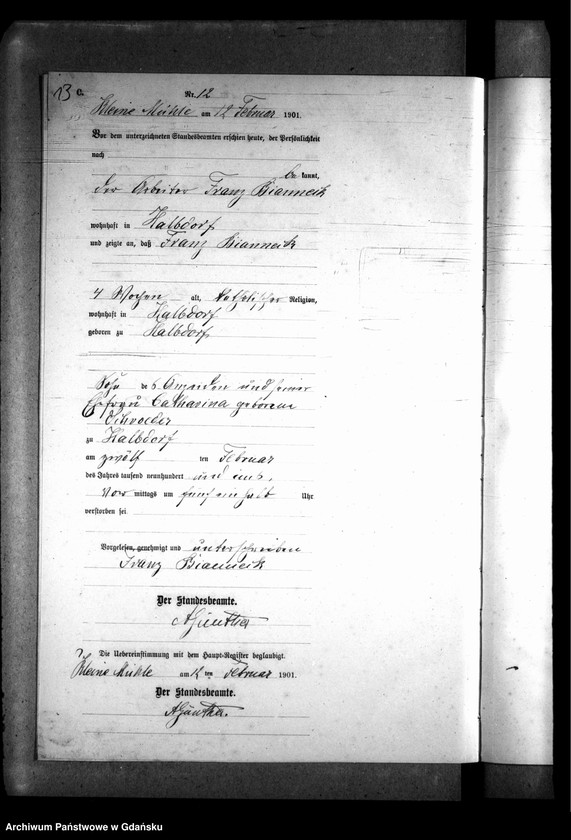 13 C.
Nr. 12
Kleine Mühle am 12 Februar 1901.
Vor dem unterzeichneten Standesbeamten erschien heute, der Persönlichkeit
nach
be kannt,
der Arbeiter Franz
wohnhaft in Kalbdorf
und zeigte an, daß Franz
4 Wochen alt, katholischer Religion,
wohnhaft in Kalbdorf
geboren zu Kalbdorf
Sohn des und seiner
Ehefrau Catharina geborene
Schroeder
zu Kalbdorf
am zwölf ten Februar
des Jahres tausend neunhundert und eins,
Vor mittags um fünf einhalb Uhr
verstorben sei
Vorgelesen, genehmigt und unterschrieben
Franz
Der Standesbeamte.
AGünther
Die Uebereinstimmung mit dem Haupt-Register beglaubigt.
Kleine Mühle am 12 ten Februar 1901.
Der Standesbeamte.
AGünther.
Archiwum Państwowe w Gdańsku